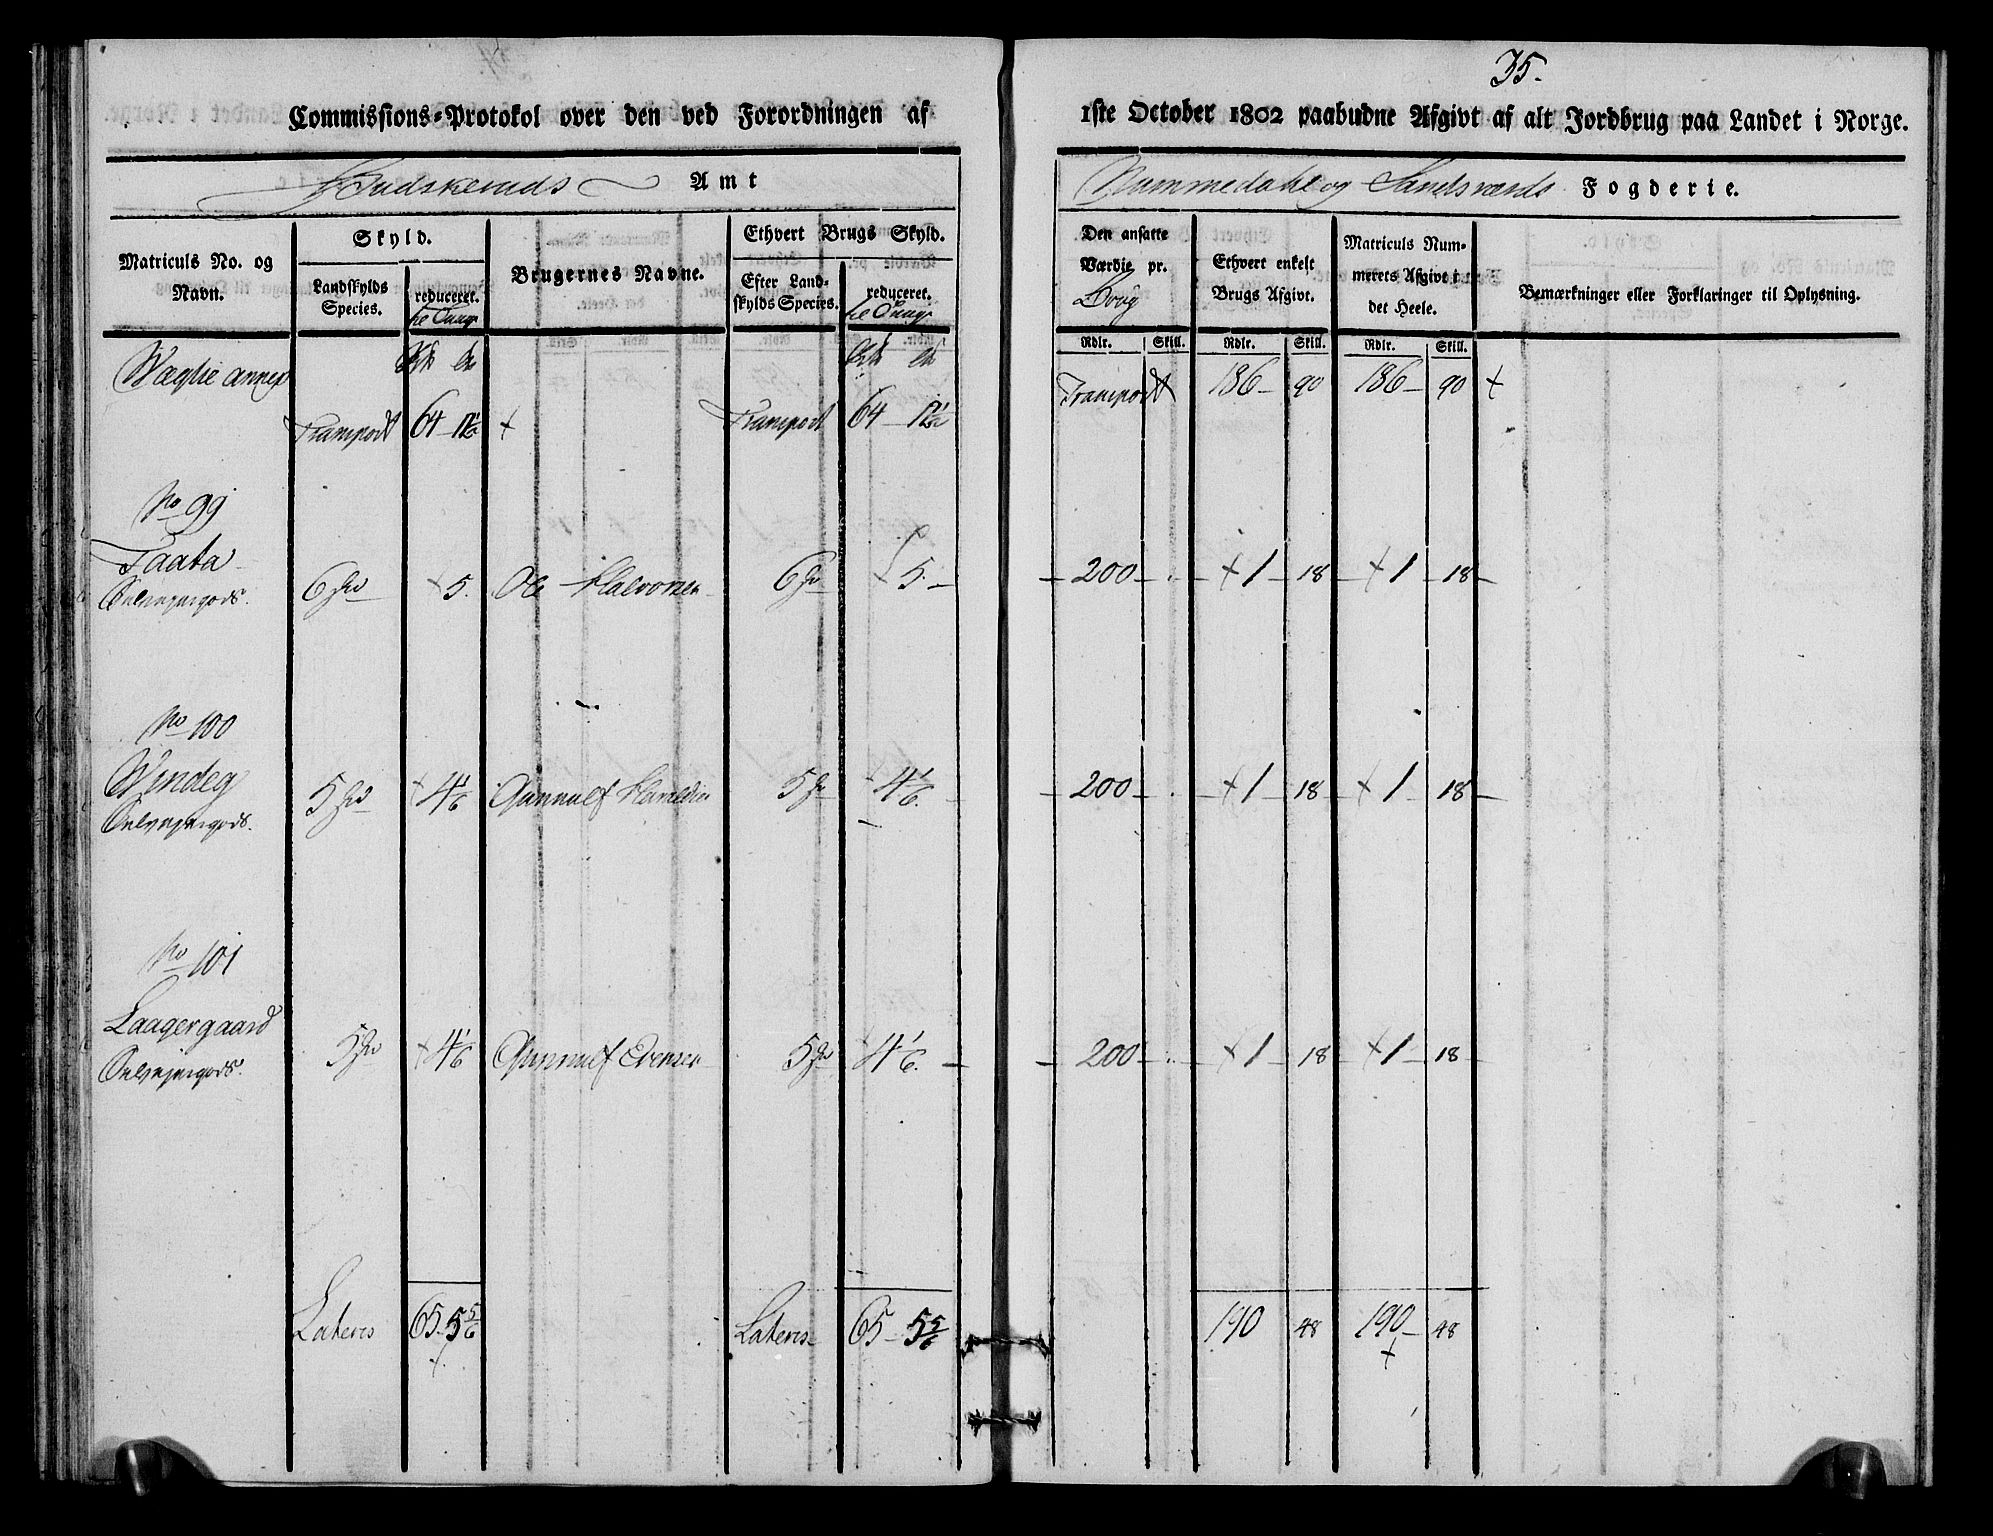 35.
Commissions-Protokol over den ved Forordningen af 1ste October 1802 paabudne Afgivt af alt Jordbrug paa Landet i Norge.
Budskeruds Amt Nummedahl og Sandsværds Fogderie.
Matriculs No. og Navn.
Skyld.
Landskylds Species.
reduceret.
Brugernes Navne.
Ethvert Brugs Skyld.
Efter Landskylds Species.
reduceret.
Den ansatte Værdie pr.
Ethvert enkelt Brugs Afgivt.
Matriculs Nummerets Afgivt i det Heele.
Bemærkninger eller Forklaringer til Oplysning.
Rdlr. Skill. Rdlr. Skill. Rdlr. Skill.
Wæglie annex
Transport 186 90 186 90 +
Transport 64 - 1½ + Transport 64 - 1½
No 99
Taata
Selvejergods. 6 + 5. Ole Halvorsen 6 + 5. 200 + 1 18 + 1 18
No 100
Windeg 5 + 4 1/6 Gunnulf 5 + 4 1/6. 200 + 1 18 + 1 18
Selvejergods.
No 101
Laagergaard
Selvejergods. 5 + 4 1/6 Gunnulf Evensen 5 4 1/6. 200 + 1 18 + 1 18
Lateris 65. 5 5/6 Lateris 65 - 5 5/6 190 48 190 48
+ +